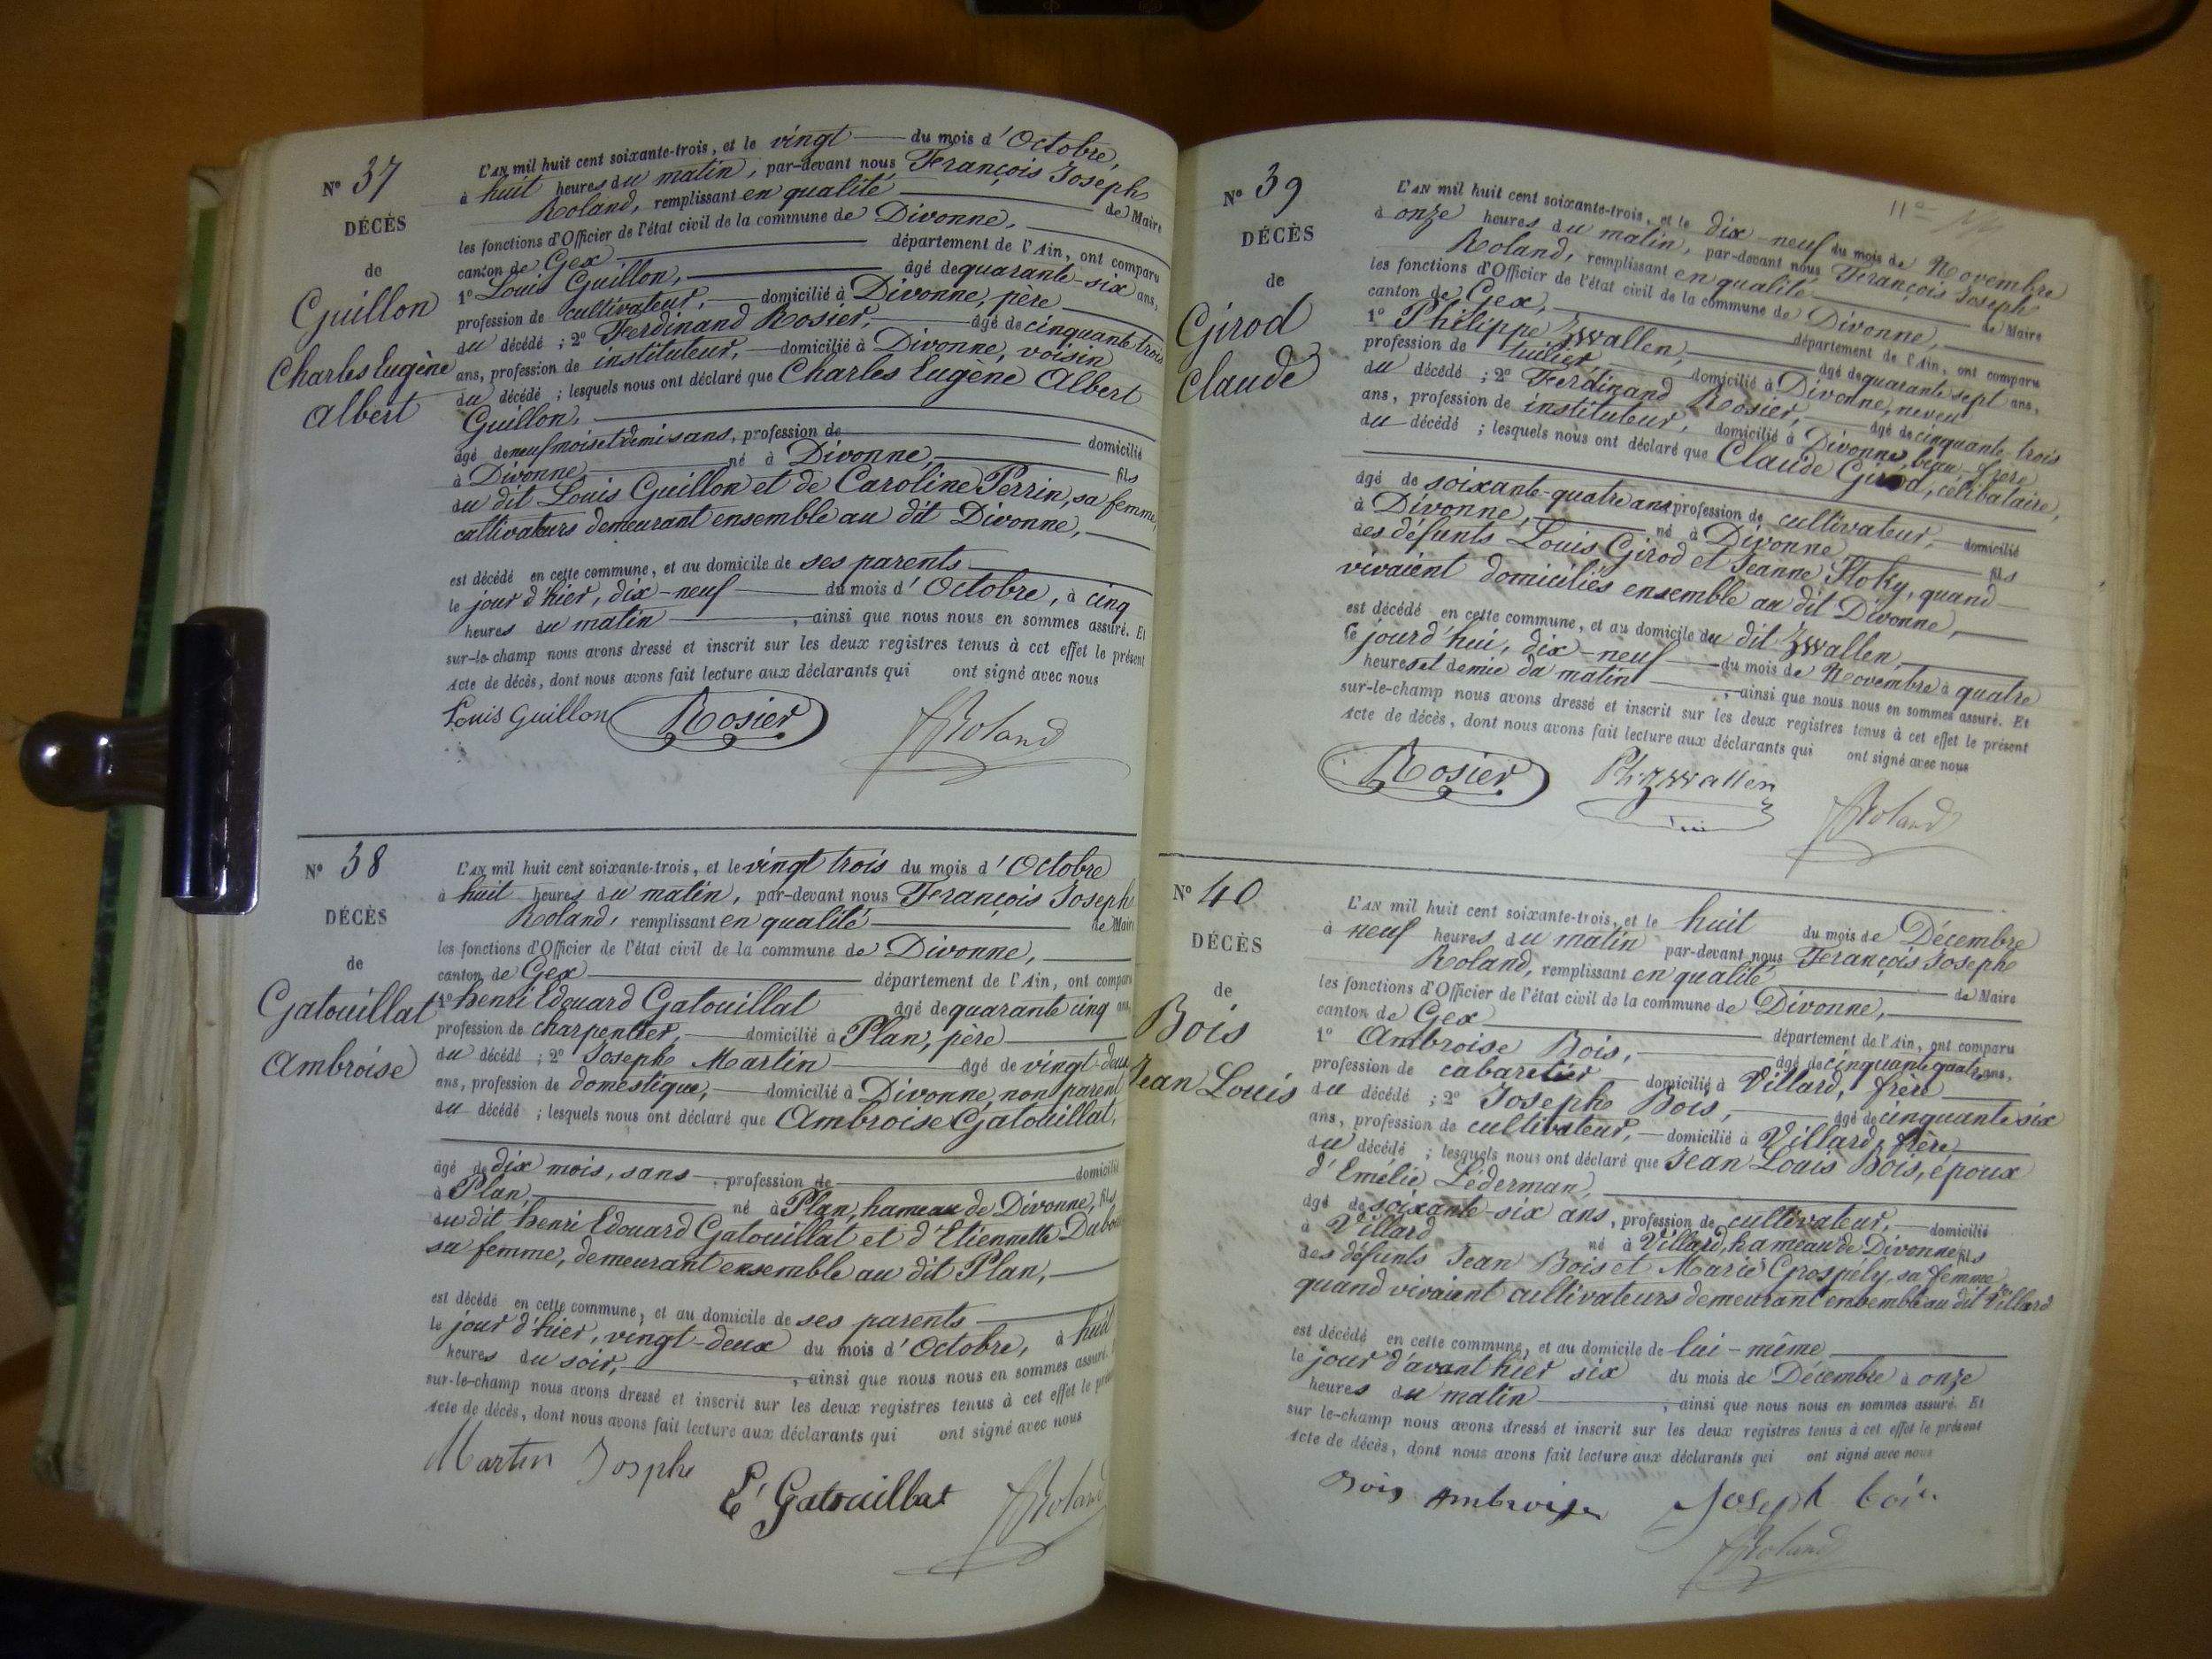 N° 37
DÉCÈS
de
Guillon
Charles Eugène
Albert
L'AN mil huit cent soixante-trois, et le vingt du mois d'Octobre,
à huit heures du matin, par-devant nous François Joseph
Roland, remplissant en qualité de Maire
les fonctions d'Officier de l'état civil de la commune de Divonne,
canton de Gex département de l'Ain, ont comparu
1° Louis Guillon, âgé de quarante-six ans,
profession de cultivateur, domicilié à Divonne, père
du décédé ; 2° Ferdinand Rosier, âgé de cinquante trois
ans, profession de instituteur, domicilié à Divonne, voisin
du décédé ; lesquels nous ont déclaré que Charles Eugène Albert
Guillon,
âgé de neuf mois et demi sans, profession de domicilié
à Divonne né à Divonne, fils
du dit Louis Guillon et de Caroline Perrin, sa femme,
cultivateurs demeurant ensemble au dit Divonne,
est décédé en cette commune, et au domicile de ses parents
le jour d'hier, dix-neuf du mois d'Octobre, à cinq
heures du matin, ainsi que nous nous en sommes assuré. Et
sur-le-champ nous avons dressé et inscrit sur les deux registres tenus à cet effet le présent
acte de décès, dont nous avons fait lecture aux déclarants qui ont signé avec nous
Louis Guillon Rosier Roland
N° 38
DÉCÈS
de
Gatouillat
Ambroise
L'AN mil huit cent soixante-trois, et le vingt trois du mois d'Octobre
à huit heures du matin, par-devant nous François Joseph
Roland, remplissant en qualité de Maire
les fonctions d'Officier de l'état civil de la commune de Divonne,
canton de Gex département de l'Ain, ont comparu
1° henri Edouard Gatouillat âgé de quarante cinq ans,
profession de charpentier, domicilié à Plan, père
du décédé ; 2° Joseph Martin âgé de vingt-deux
ans, profession de domestique, domicilié à Divonne, non parent
du décédé ; lesquels nous ont déclaré que Ambroise Gatouillat,
âgé de dix mois, sans, profession de domicilié
à Plan, né à Plan, hameau de Divonne, fils
du dit henri Edouard Gatouillat et d'Etiennette Dubois
sa femme, demeurant ensemble au dit Plan,
est décédé en cette commune, et au domicile de ses parents
le jour d'hier, vingt-deux du mois d'Octobre, à huit
heures du soir, ainsi que nous nous en sommes assuré.
sur-le-champ nous avons dressé et inscrit sur les deux registres tenus à cet effet le présent
acte de décès, dont nous avons fait lecture aux déclarants qui ont signé avec nous
Martin Josph
E Gatouillat Roland
N° 39
DÉCÈS
de
Girod
Claude
L'AN mil huit cent soixante-trois, et le dix-neuf du mois de Novembre
à onze heures du matin, par-devant nous François Joseph
Roland, remplissant en qualité de Maire
les fonctions d'Officier de l'état civil de la commune de Divonne,
canton de Gex, département de l'Ain, ont comparu
1° Philippe Zwallen, âgé de quarante sept ans,
profession de tuilier domicilié à Divonne, neveu
du décédé ; 2° Ferdinand Rosier, âgé de cinquante-trois
ans, profession de instituteur, domicilié à Divonne, beau-frère
du décédé ; lesquels nous ont déclaré que Claude Girod, célibataire,
âgé de soixante-quatre ans profession de cultivateur, domicilié
à Divonne, né à Divonne fils
des défunts Louis Girod et Jeanne Floky, quand
vivaient domiciliés ensemble au dit Divonne,
est décédé en cette commune, et au domicile du dit Zwallen,
le jourd'hui, dix-neuf du mois de Novembre à quatre
heures et demie du matin, ainsi que nous nous en sommes assuré. Et
sur-le-champ nous avons dressé et inscrit sur les deux registres tenus à cet effet le présent
acte de décès, dont nous avons fait lecture aux déclarants qui ont signé avec nous
Rosier Ph. Zwallen Roland
N° 40
DÉCÈS
de
Bois
Jean Louis
L'AN mil huit cent soixante-trois, et le huit du mois de Décembre
à neuf heures du matin par-devant nous François Joseph
Roland, remplissant en qualité de Maire
les fonctions d'Officier de l'état civil de la commune de Divonne,
canton de Gex département de l'Ain, ont comparu
1° Ambroise Bois, âgé de cinquante quatre ans,
profession de cabaretier domicilié à Villard, frère
du décédé ; 2° Joseph Bois, âgé de cinquante six
ans, profession de cultivateur, domicilié à Villard, frère
du décédé ; lesquels nous ont déclaré que Jean Louis Bois, époux
d'Emélie Léderman,
âgé de soixante-six ans, profession de cultivateur, domicilié
à Villard né à Villard, hameau de Divonne fils
des défunts Jean Bois et Marie Crospély sa femme
quand vivaient cultivateurs demeurant ensemble au dit Villard
est décédé en cette commune, et au domicile de lui-même
le jour d'avant hier six du mois de Décembre à onze
heures du matin, ainsi que nous nous en sommes assuré. Et
sur le-champ nous avons dressé et inscrit sur les deux registres tenus à cet effet le présent
acte de décès, dont nous avons fait lecture aux déclarants qui ont signé avec nous
Bois Ambroise Joseph bois
Roland